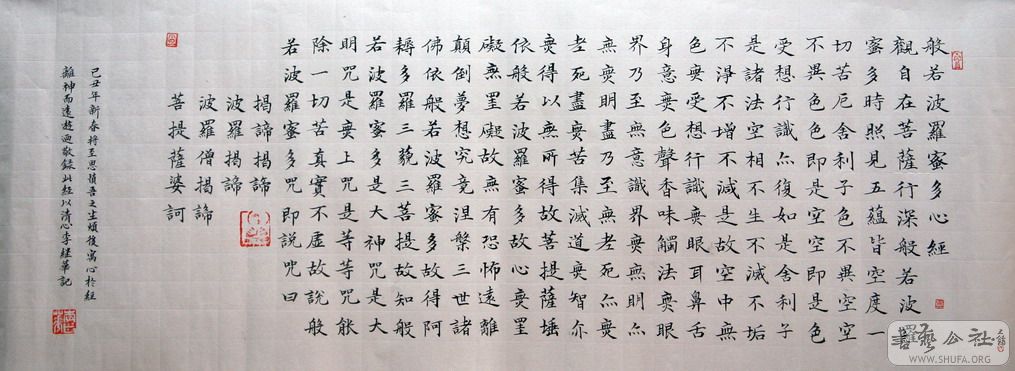 般若波羅蜜多心經
觀自在菩薩行深般若波羅
蜜多時照見五蘊皆空度一
切苦厄舍利子色不異空空
不異色色即是空空即是色
受想行識亦復如是舍利子
是諸法空相不生不滅不垢
不淨不增不減是故空中無
色無受想行識無眼耳鼻舌
身意無色聲香味觸法無眼
界乃至無意識界無無明亦
無無明盡乃至無老死亦無
老死盡無苦集滅道無智亦
無得以無所得故菩提薩埵
依般若波羅蜜多故心無罣
礙無罣礙故無有恐怖遠離
顛倒夢想究竟涅槃三世諸
佛依般若波羅蜜多故得阿
耨多羅三藐三菩提故知般
若波羅蜜多是大神咒是大
明咒是無上咒是等等咒能
除一切苦真實不虛故說般
若波羅蜜多咒即說咒曰
揭諦揭諦
波羅揭諦
波羅僧揭諦
菩提薩婆訶
己丑年新春將至思吾之生煩後寫心於經
離神而遠敬錄此經以清心李經華記
書藝公社
WWW.SHUFA.ORG